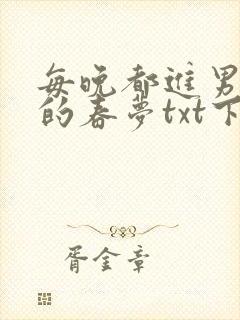 每晚都进男
的春梦txt下
胥金章